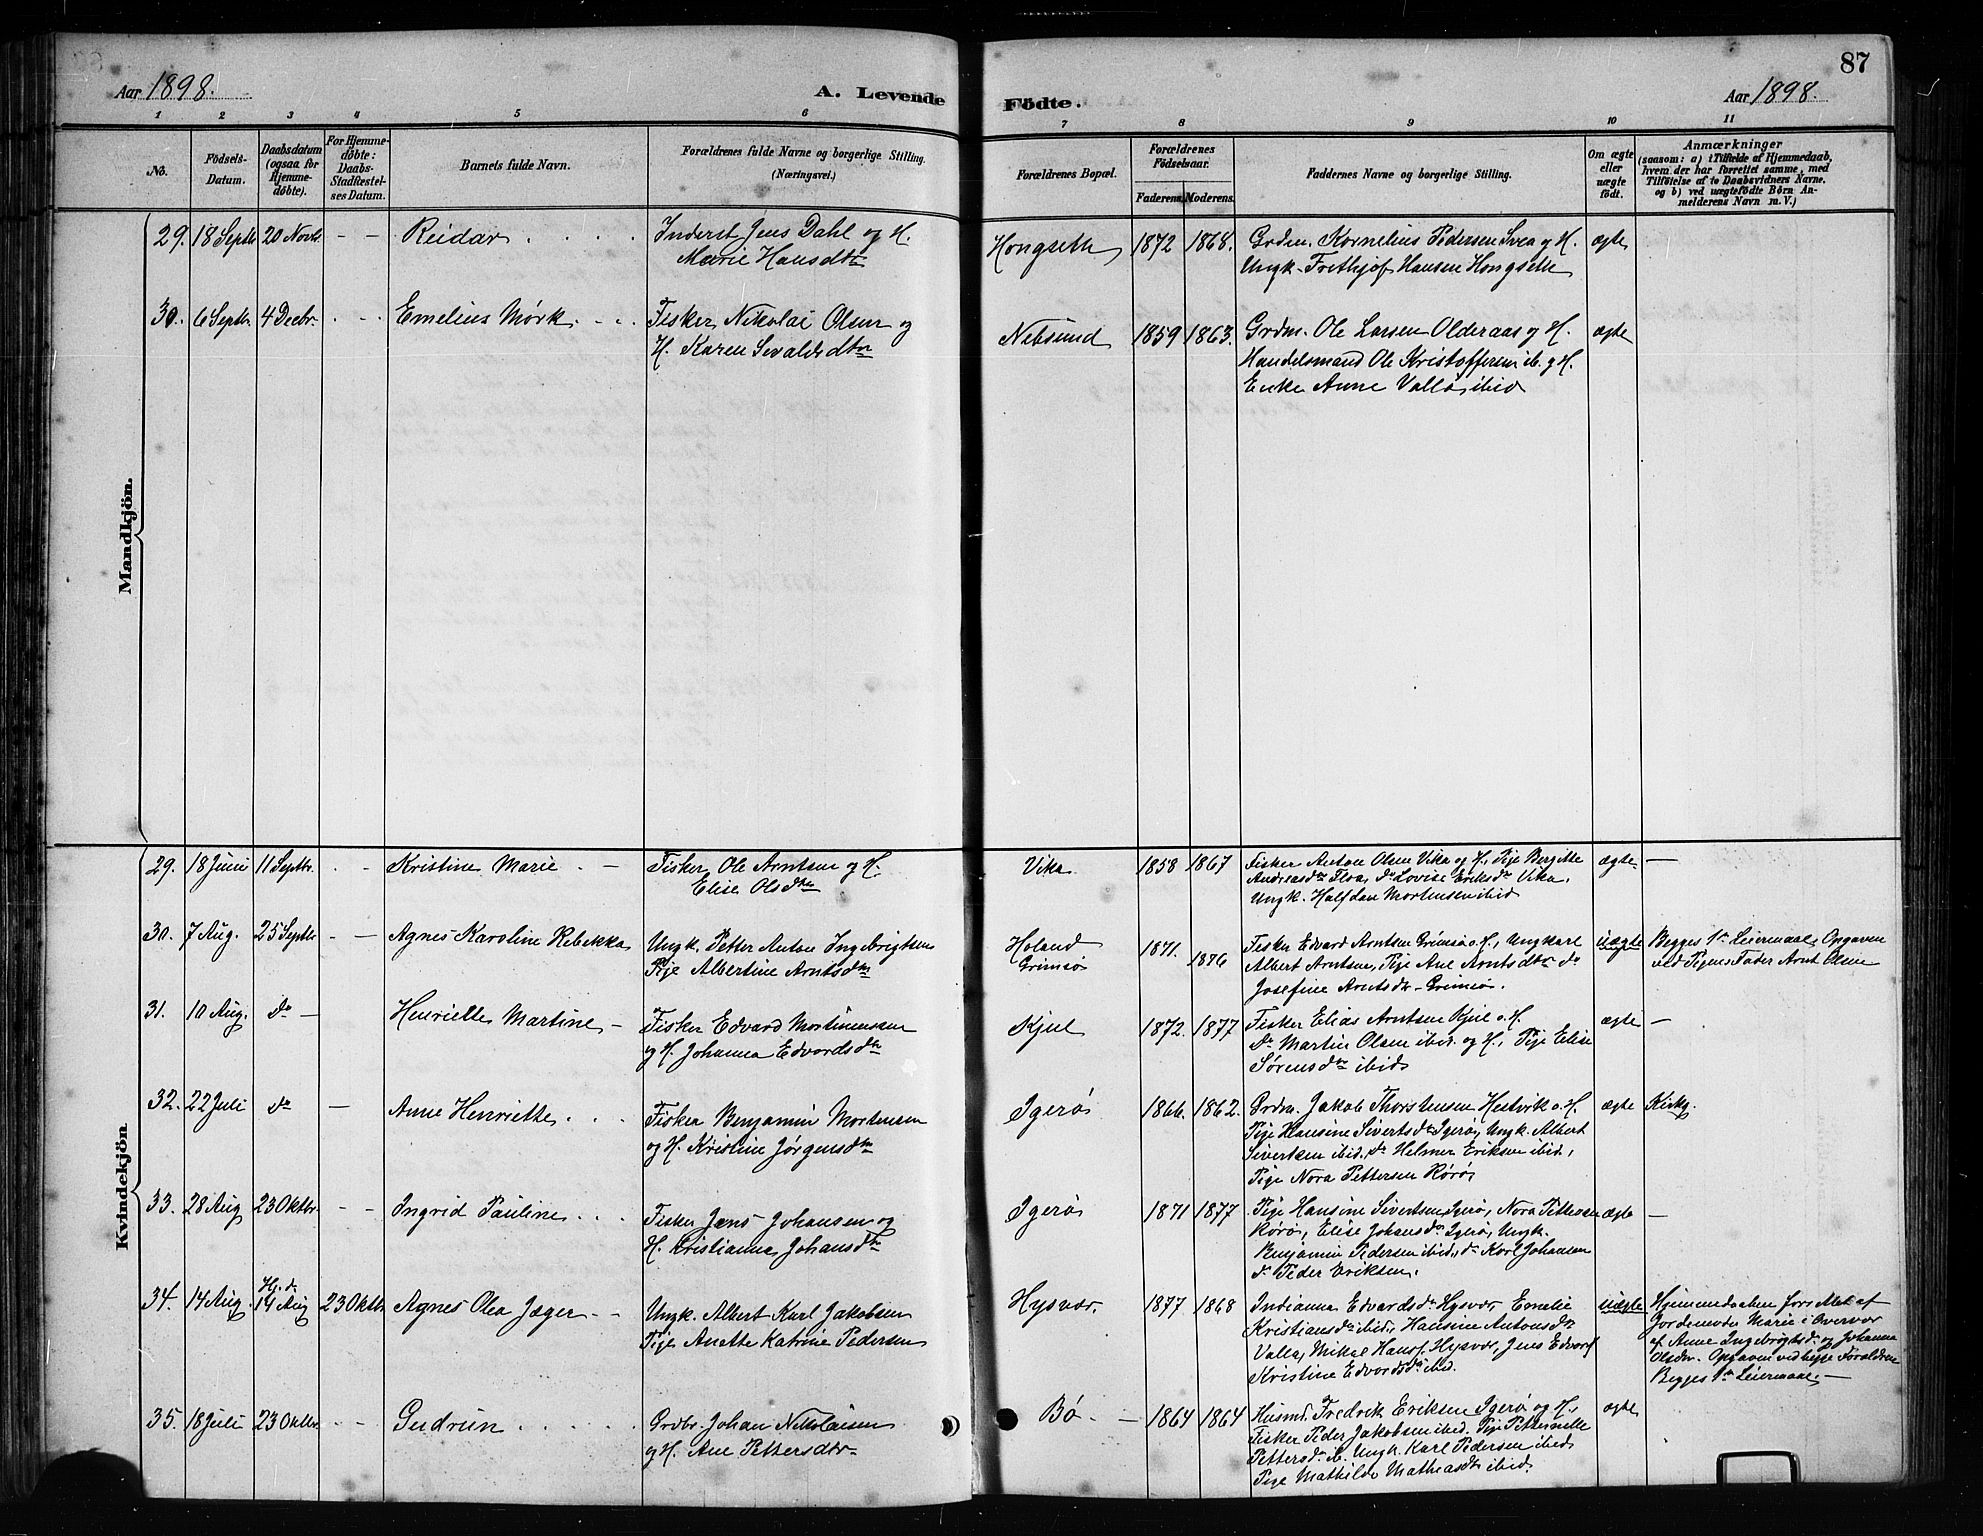 Aar 1898.
A. Levende
Födte.
Aar 1898.
87
1 2 3 4 5 6 7 8 9 10 11
No.
Födsels-
Datum.
Daabsdatum
(ogsaa for
Hjemme-
döbte).
For Hjemme-
döbte:
Daabs-
Stadfæstel-
ses Datum.
Barnets fulde Navn.
Forældrenes fulde Navne og borgerlige Stilling.
(Næringsvei.)
Forældrenes Bopæl.
Forældrenes
Födselsaar.
Faderens.
Moderens.
Faddernes Navne og borgerlige Stilling.
Om ægte
eller
uægte
födt.
Anmærkninger
(saasom: a) i Tilfælde af Hjemmedaab,
hvem der har forrettet samme, med
Tilföielse af to Daabsvidners Navne,
og b) ved uægtefödte Börn An-
melderens Navn m. V.)
Mandkjön.
29. 18 Septbr 20 Novb. - - Reidar
Inderst Jens Dahl og H.
Marie Hansdtr
Hongseth 1872 1868.
Grdm. Kornelius Pedersen Svea og H.
Ungk. Frithjof Hansen Hongseth
ægte
30. 6 Septbr. 4 Decbr. - - Emelius Mörk
Fisker Nikolai Olsen og
H. Karen Sevaldsdtr
Nebsund 1859 1863.
Grdm. Ole Larsen Olderaas og H.
Handelsmand Ole Kristoffersen ib. og H.
Enke Anne Valla, ibid
ægte
Kvindekjön.
29. 18 Juni 11 Septbr. - - Kristine Marie
Fisker Ole Arntsen og H.
Elise Olsdtr
Vika 1858 1867
Fisker Anton Olsen Vika og H., Pige Bergitte
Andreasdtr Floa, do Lovise Eriksdr Vika,
Ungk. Halfdan Mortensen ibid
ægte —
30. 7 Aug. 25 Septbr - - Agnes Karoline Rebekka
Ungk. Petter Anton Ingebrigtsen
Pige Albertine Arntsdtr
Holand
Grimsø
1871. 1876
Fisker Edvard Arntsen Grimsø o. H., Ungkarl
Albert Arntsen, Pige Ane Arntsdtr do
Josefine Arntsdtr - Grimsø.
uægte
Begges 1ste Leiermaal. Opgaven
ved Pigens Fader Arnt Olsen
31. 10 Aug. do — Henrielle Martine —
Fisker Edvard Mortinussen
og H. Johanna Edvardsdtr
Kjul 1872. 1877
Fisker Elias Arntsen Kjul o. H.
do Martin Olsen ibid. og H., Pige Elise
Sørensdtr ibid
ægte —
32. 22 Juli do — Anne Henriette
Fisker Benjamin Mortensen
og H. Kristine Jørgensdtr
Igerø 1866. 1862.
Grdm. Jakob Thorstensen Hestvik o. H.
Pige Hansine Sivertsdtr Igerø, Ungk. Albert
Sivertsen ibid., do Helmer Eriksen ibid,
Pige Nora Pettersen Rørø
ægte Kirkg.
33. 28 Aug 23 Oktbr. - - Ingrid Pauline
Fisker Jens Johansen og
H. Kristianna Johansdtr
Igerø 1871 1877
Pige Hansine Sivertsen Igerø, Nora Pettersen
Rørø, Elise Johansdr Igerø, Ungk.
Benjamin Pedersen ibid., do Karl Johansen
do Peder Eriksen.
ægte —
34. 14 Aug. Hj. d.
14 Aug 23 Oktbr Agnes Olea Jæger
Ungk. Albert Karl Jakobsen
Pige Anette Katrine Pedersen
Hysvær. 1877 1868
Indianna Edvardsdr Hysvær, Emelie
Kristiansdtr ibid., Hansine Antonsdtr
Valla, Mikal Hansen, Hysvær, Jens Edvards
Kristine Edvardsdtr ibid.
uægte
Hjemmedaaben forrettet af
Jordemoder Marie i Overvær
af Anne Ingebrigtsdr. og Johanna
Olsdtr. Opgaven ved begge Forældrene
Begges 1ste Leiermaal. —
35. 18 Juli 23 Oktbr - - Gudrun
Grdbr. Johan Nikolaisen
og H. Ane Pettersdtr
Bø. — 1864 1864
Husmd. Fredrik Eriksen Igerø og H.,
Fisker Peder Jakobsen ibid. Pige Petternelle
Pettersdtr ib. Ungk. Karl Pedersen ibid
Pige Mathilde Mathiasdtr ibid.
ægte